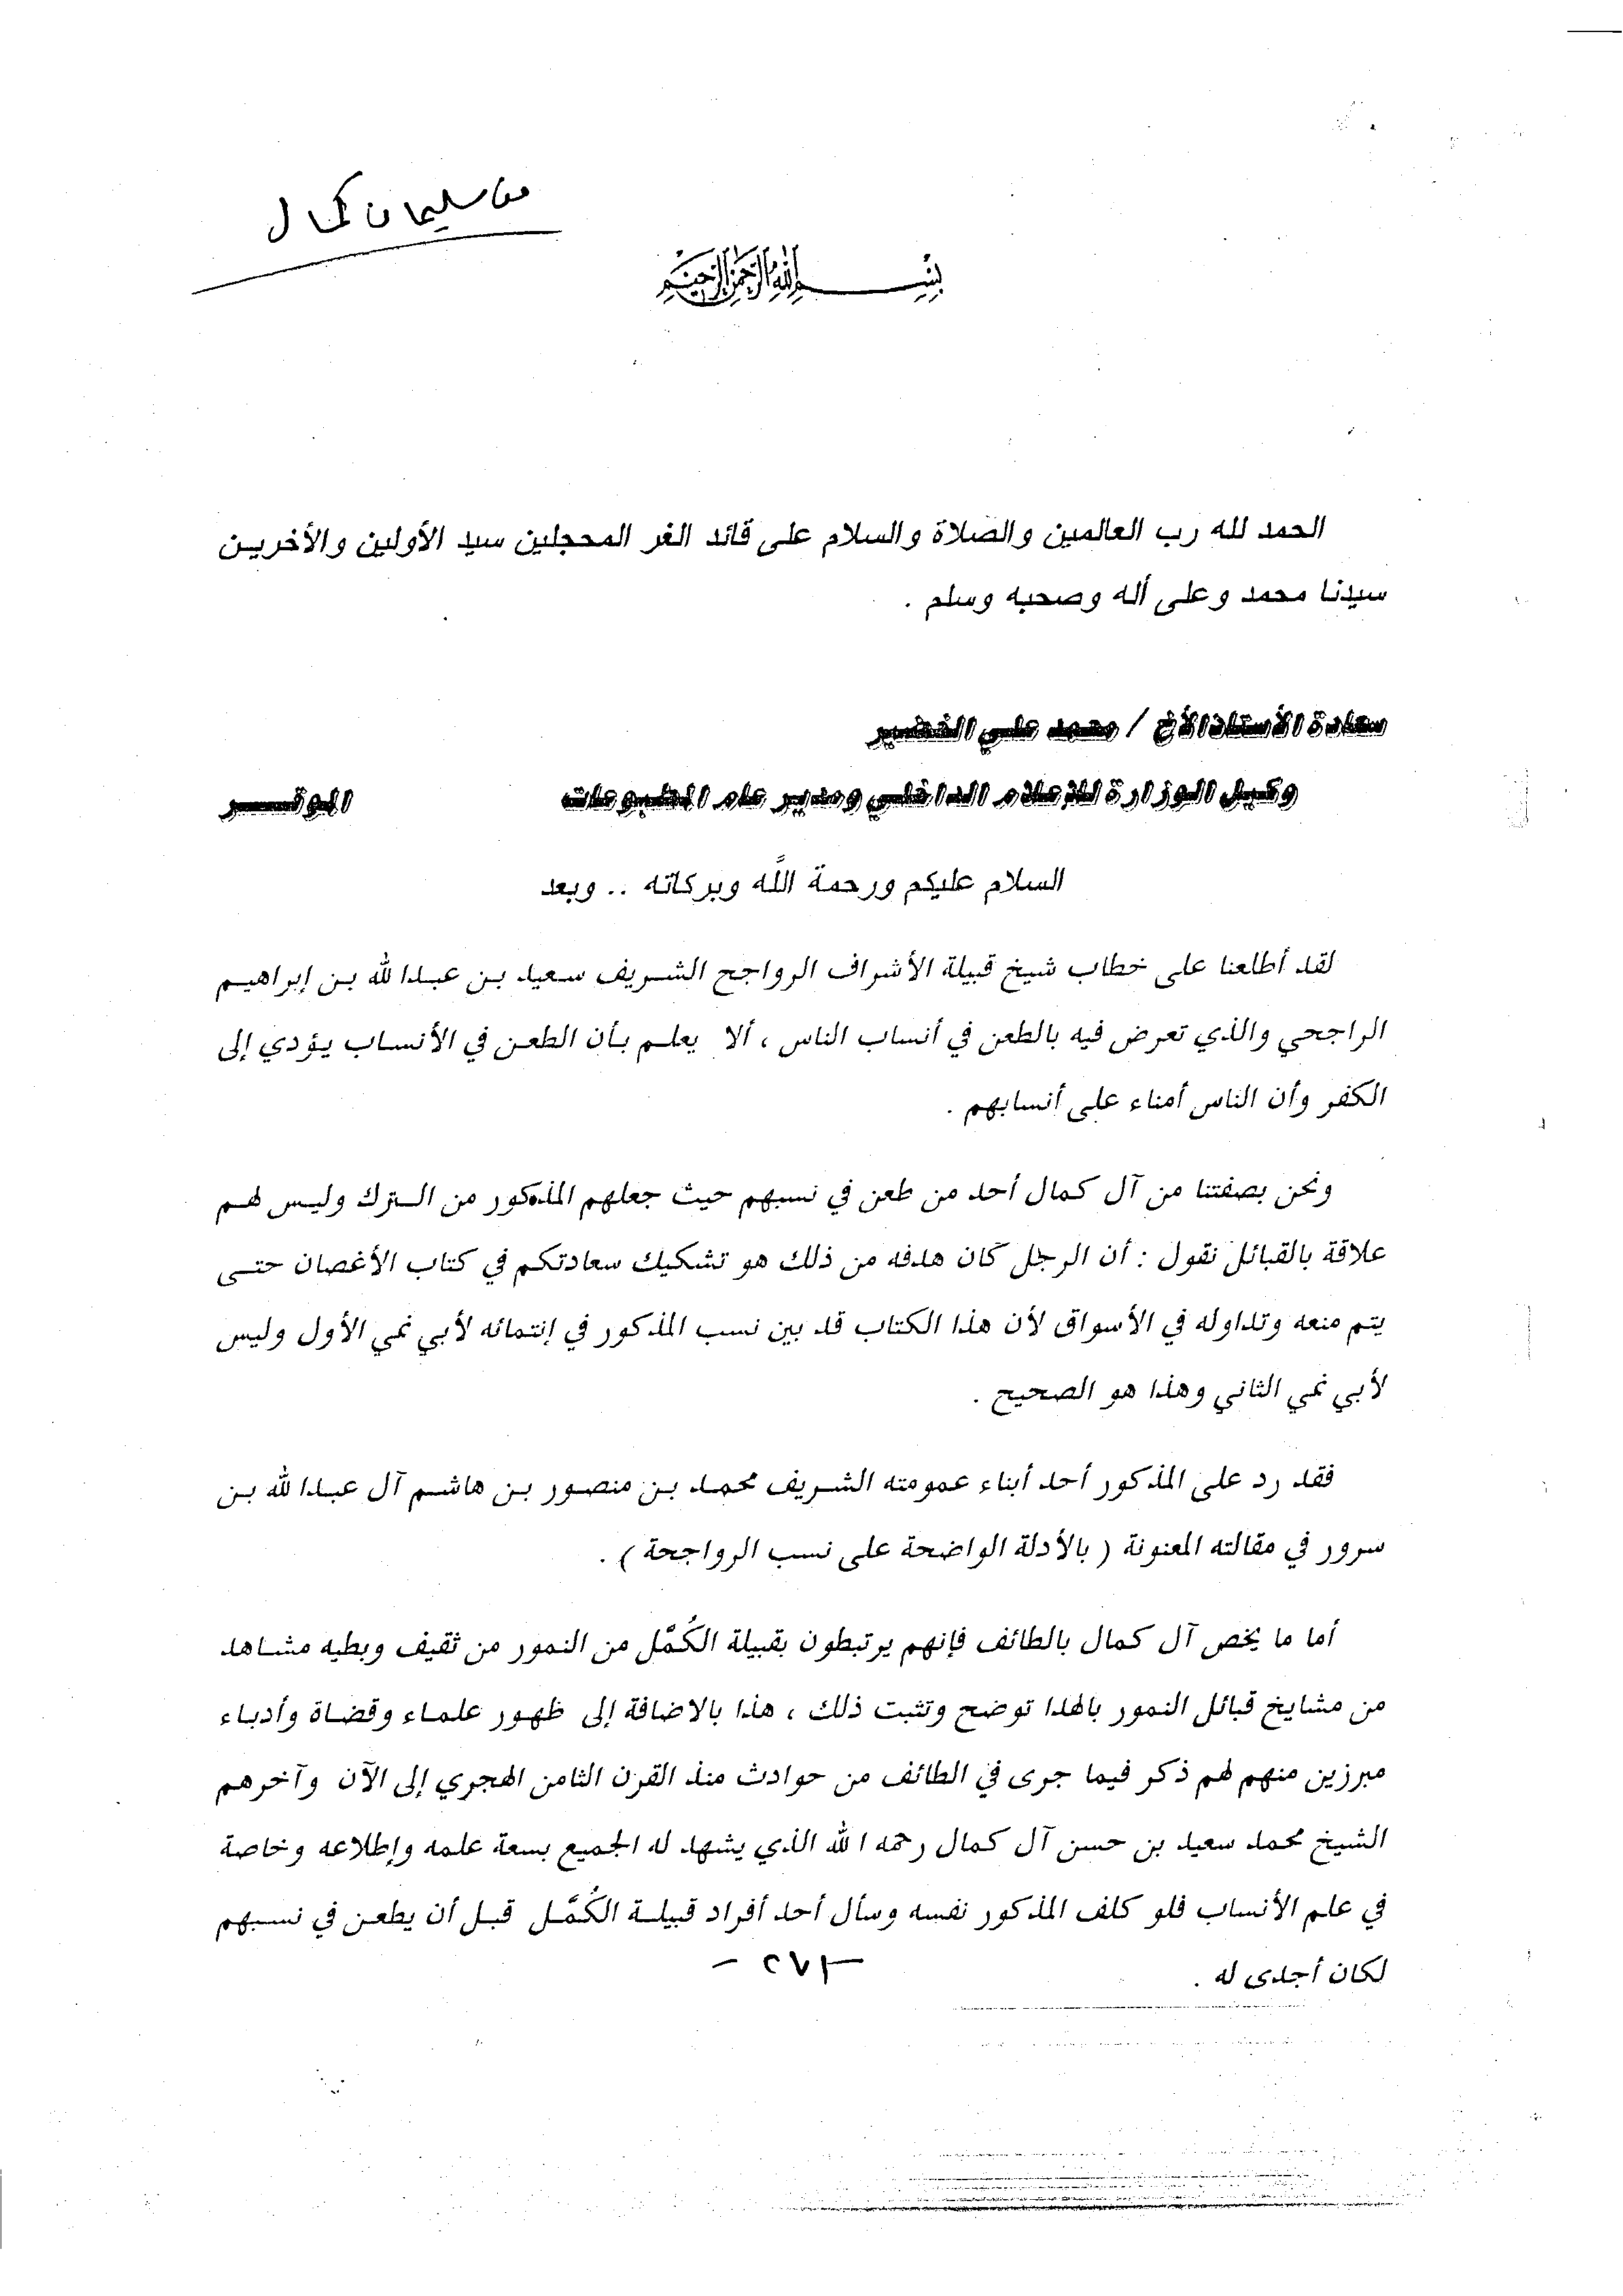 من سليمان كمال
بسم الله الرحمن الرحيم
الحمد لله رب العالمين والصلاة والسلام على قائد الغر المحجلين سيد الأولين والأخريـن
سيدنا محمد وعلى أله وصحبه وسلم .
سعادة الأستاذ الأخ / محمد علي الخضير
وكيل الوزارة للإعلام الداخلي ومدير عام المطبوعات الموقـــر
السلام عليكم ورحمة اللَّه وبركاته .. وبعد
لقد أطلعنا على خطاب شيخ قبيلة الأشراف الرواجح الشـريف سعيد بـن عبـدا لله بـن إبراهيـم
الراجحي والذي تعرض فيه بالطعن في أنساب الناس ، ألا يعلـم بـأن الطعـن في الأنسـاب يـؤدي إلى
الكفر وأن الناس أمناء على أنسابهم .
ونحن بصفتنا من آل كمال أحد من طعن في نسبهم حيث جعلهم المذكور من الـترك وليـس لهـم
علاقة بالقبائل نقول : أن الرجل كان هدفه من ذلك هو تشكيك سعادتكم في كتاب الأغصان حتـى
يتم منعه وتداوله في الأسواق لأن هذا الكتاب قد بين نسب المذكور في إنتمائه لأبي نمي الأول وليس
لأبي نمي الثاني وهذا هو الصحيح .
فقد رد على المذكور أحد أبناء عمومته الشـريف محمـد بـن منصـور بـن هاشـم آل عبـدا لله بـن
سرور في مقالته المعنونة ( بالأدلة الواضحة على نسب الرواجحة ) .
أما ما يخص آل كمال بالطائف فإنهم يرتبطون بقبيلة الكُمَّل من النمور من ثقيف وبطيه مشـاهد
من مشايخ قبائل النمور بالهدا توضح وتثبت ذلك ، هذا بالاضافة إلى ظهـور علمـاء وقضـاة وأدبـاء
مبرزين منهم لهم ذكر فيما جرى في الطائف من حوادث منذ القرن الثامن الهجري إلى الآن وآخرهم
الشيخ محمد سعيد بن حسن آل كمال رحمه ا لله الذي يشهد له الجميع بسعة علمه وإطلاعه وخاصة
في علم الأنساب فلو كلف المذكور نفسه وسأل أحد أفراد قبيلـة الكُمَّـل قبـل أن يطعـن في نسـبهم
لكان أجدى له .